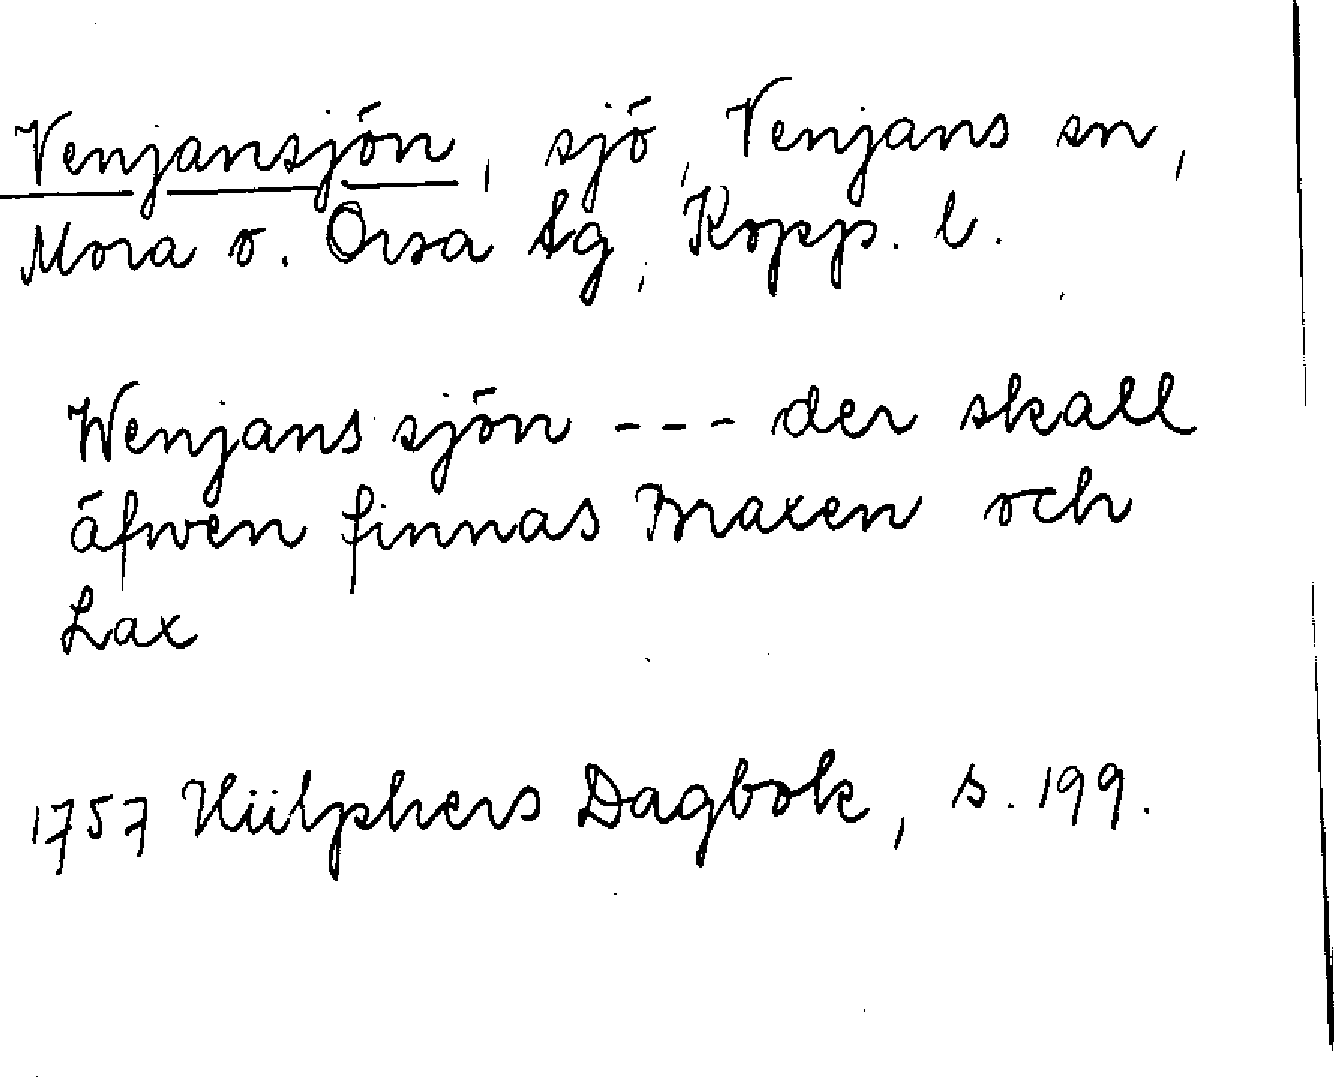 Venjansjön, sjö, Venjans sn,
Mora o. Orsa tg, Kopp. l.
Wenjans sjön --- der skall
äfwen finnas Braxen och
Lax
1757 Hülphers Dagbok, s. 199.